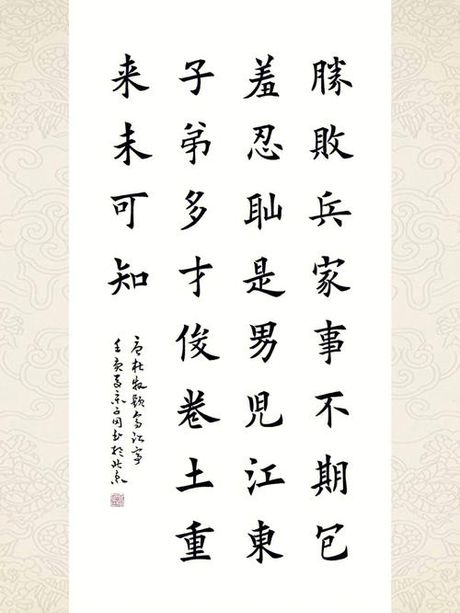 勝敗兵家事不期包
羞忍耻是男児江東
子弟多才俊卷土重
来未可知
唐杜牧题乌江亭
壬寅夏书於北京